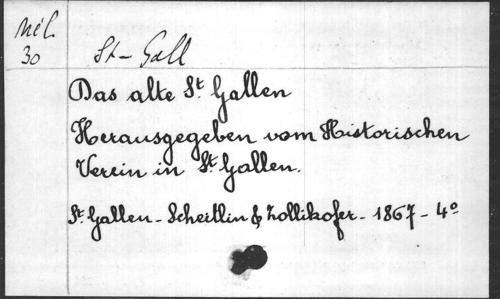 Mél.
30
St-Gall
Das alte St. Gallen
Herausgegeben vom Historischen
Verein in St. Gallen.
St. Gallen - Scheitlin & Zollikofer - 1867 - 4°